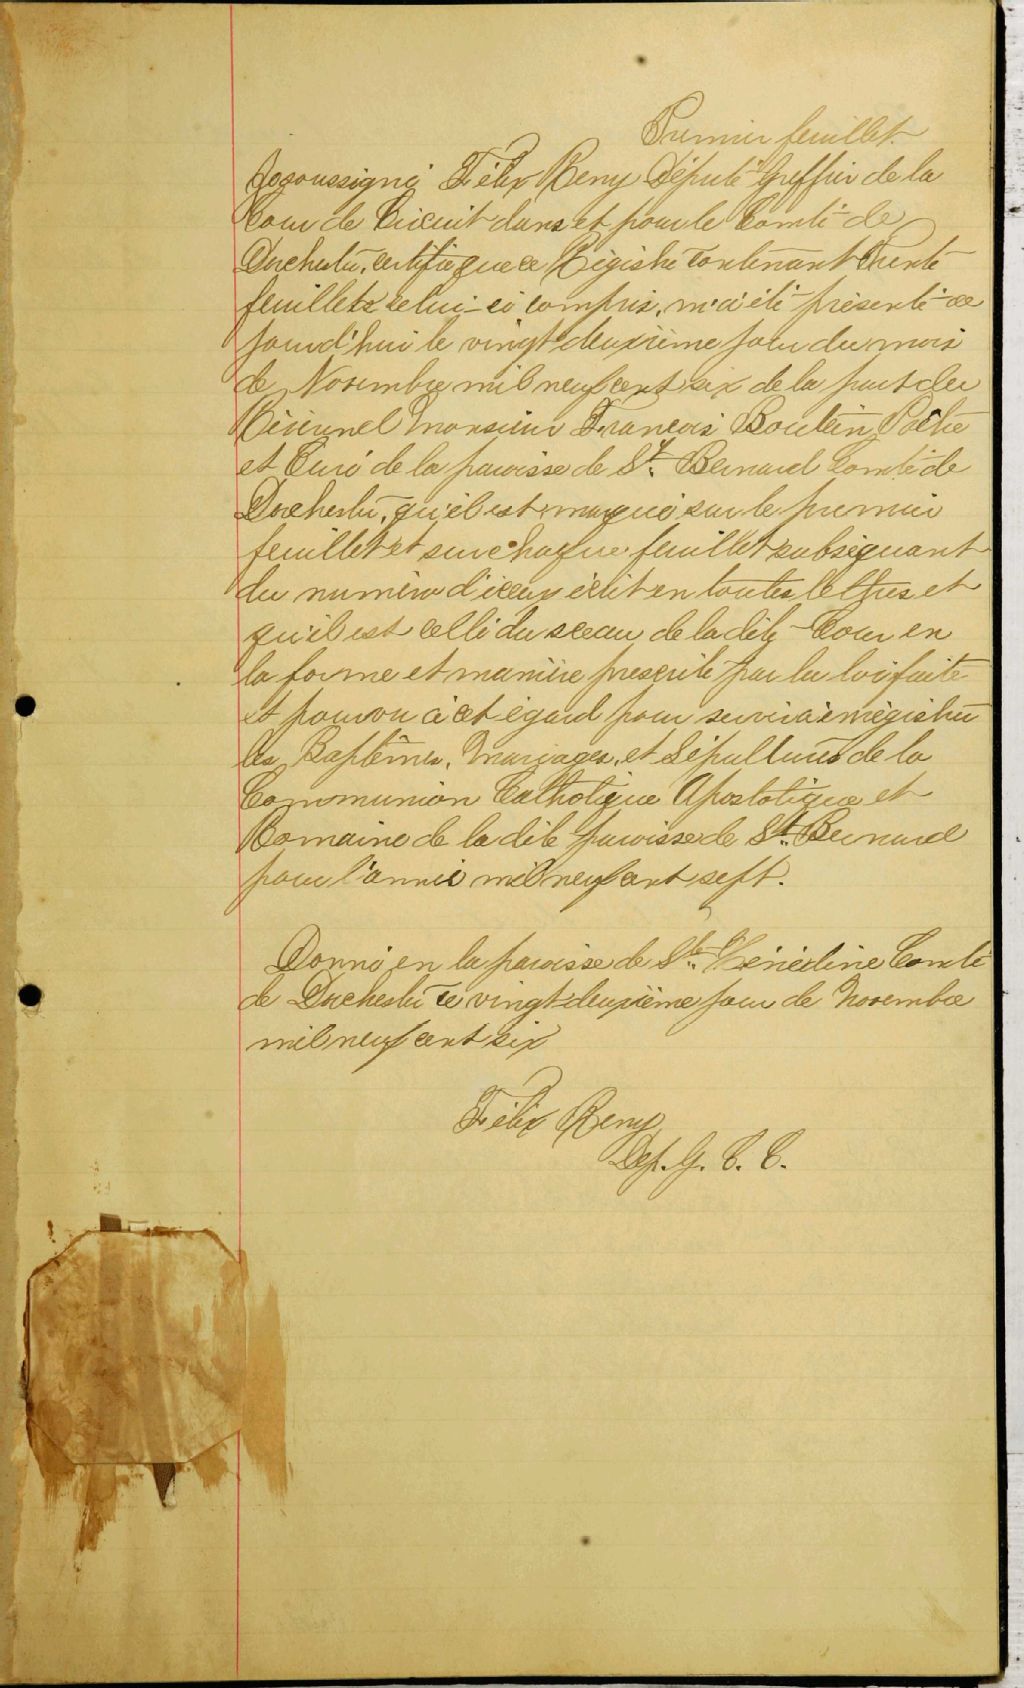 Premier feuillet.
Je soussigné Félix Remy Député Greffier de la
Cour de Circuit dans et pour le Comté de
Dorchester, certifie que ce Régistre contenant Trente
feuillets celui-ci compris, m'a été présenté ce
jourd'hui le vingt deuxième jour du mois
de Novembre mil neuf cent six de la part du
Révérend Monsieur François Boutin, Prêtre
et Curé de la paroisse de St. Bernard Comté de
Dorchester, qu'il est marqué sur le premier
feuillet et sur chaque feuillet subséquant
du numéro d'iceux écrit en toutes lettres et
qu'il est cellé du sceau de la dite Cour en
la forme et manière prescrite par la loi faite
et pourvu à cet égard pour servir à enrégistrer
les Baptêmes, Mariages, et Sépultures de la
Communion Catholique Apostolique et
Romaine de la dite paroisse de St. Bernard
pour l'année mil neuf cent sept.
Donné en la paroisse de Ste. Hénédine Comté
de Dorchester ce vingt deuxième jour de Novembre
mil neuf cent six
Félix Remy
Dep. G. C. C.